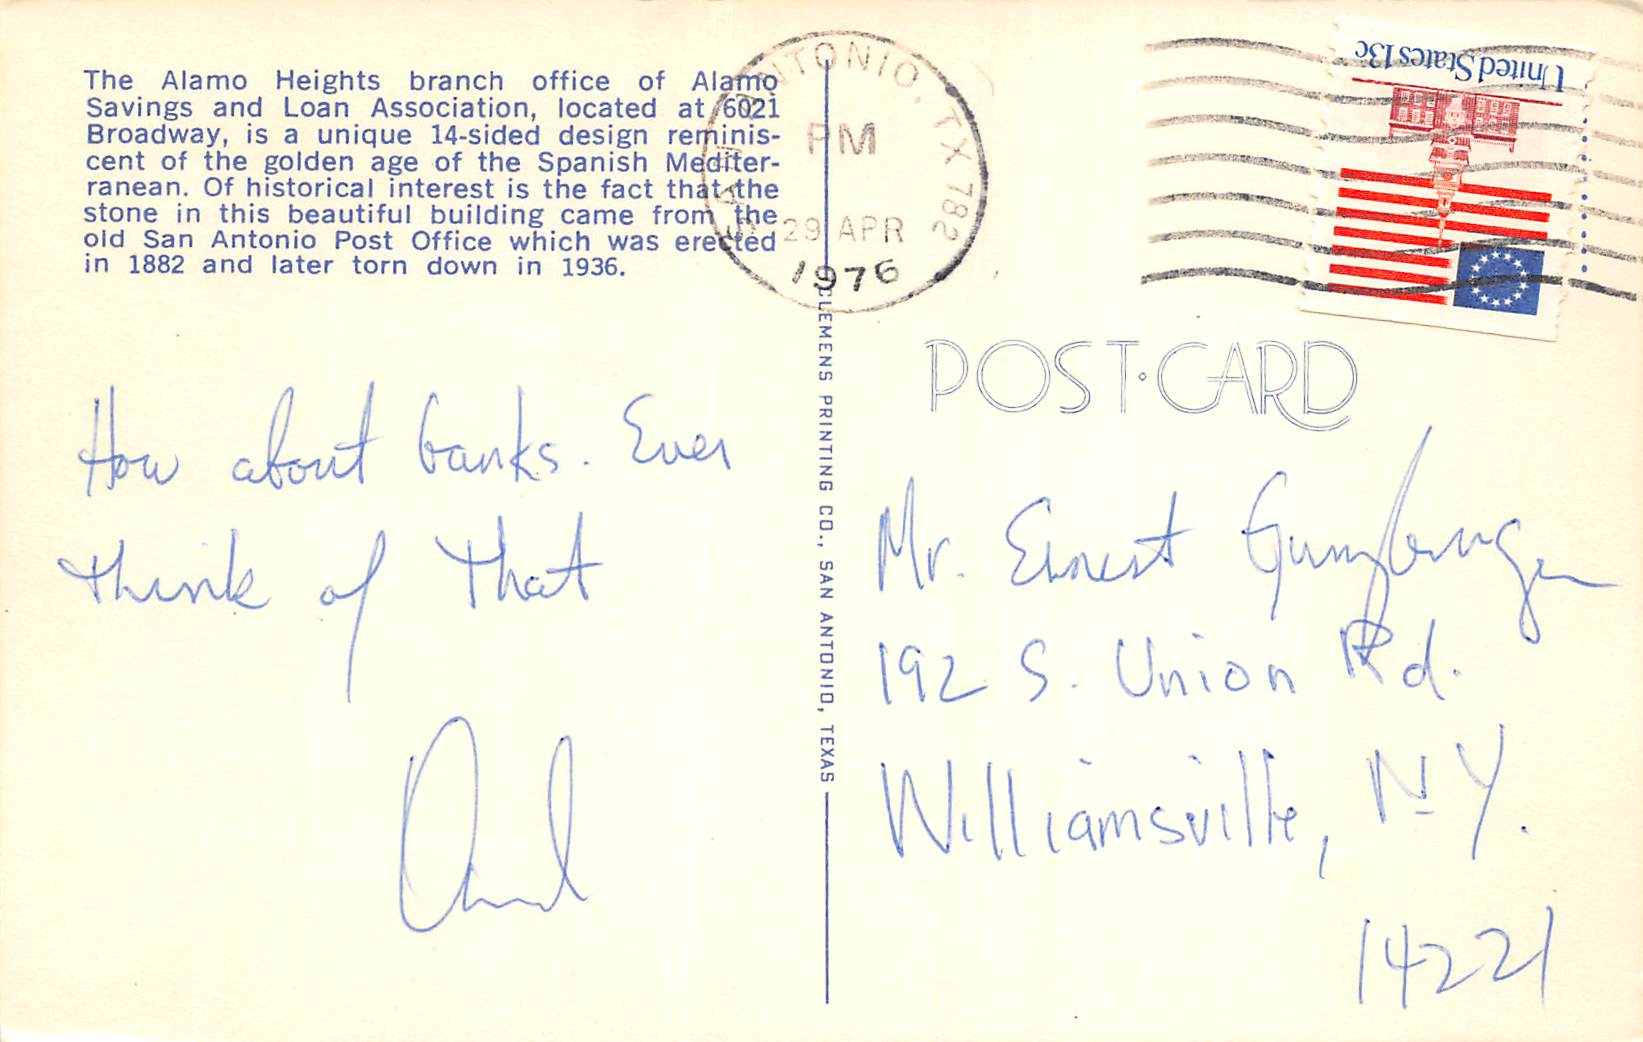 The Alamo Heights branch office of Alamo
Savings and Loan Association, located at 6021
Broadway, is a unique 14-sided design reminis-
cent of the golden age of the Spanish Mediter-
ranean. Of historical interest is the fact that the
stone in this beautiful building came from the
old San Antonio Post Office which was erected
in 1882 and later torn down in 1936.
SAN ANTONIO, TX 782
PM
29 APR
1976
United States 13c
POST·CARD
CLEMENS PRINTING CO., SAN ANTONIO, TEXAS
How about banks. Ever
think of that
Mr. Ernest
192 S. Union Rd.
Williamsville, N.Y.
14221